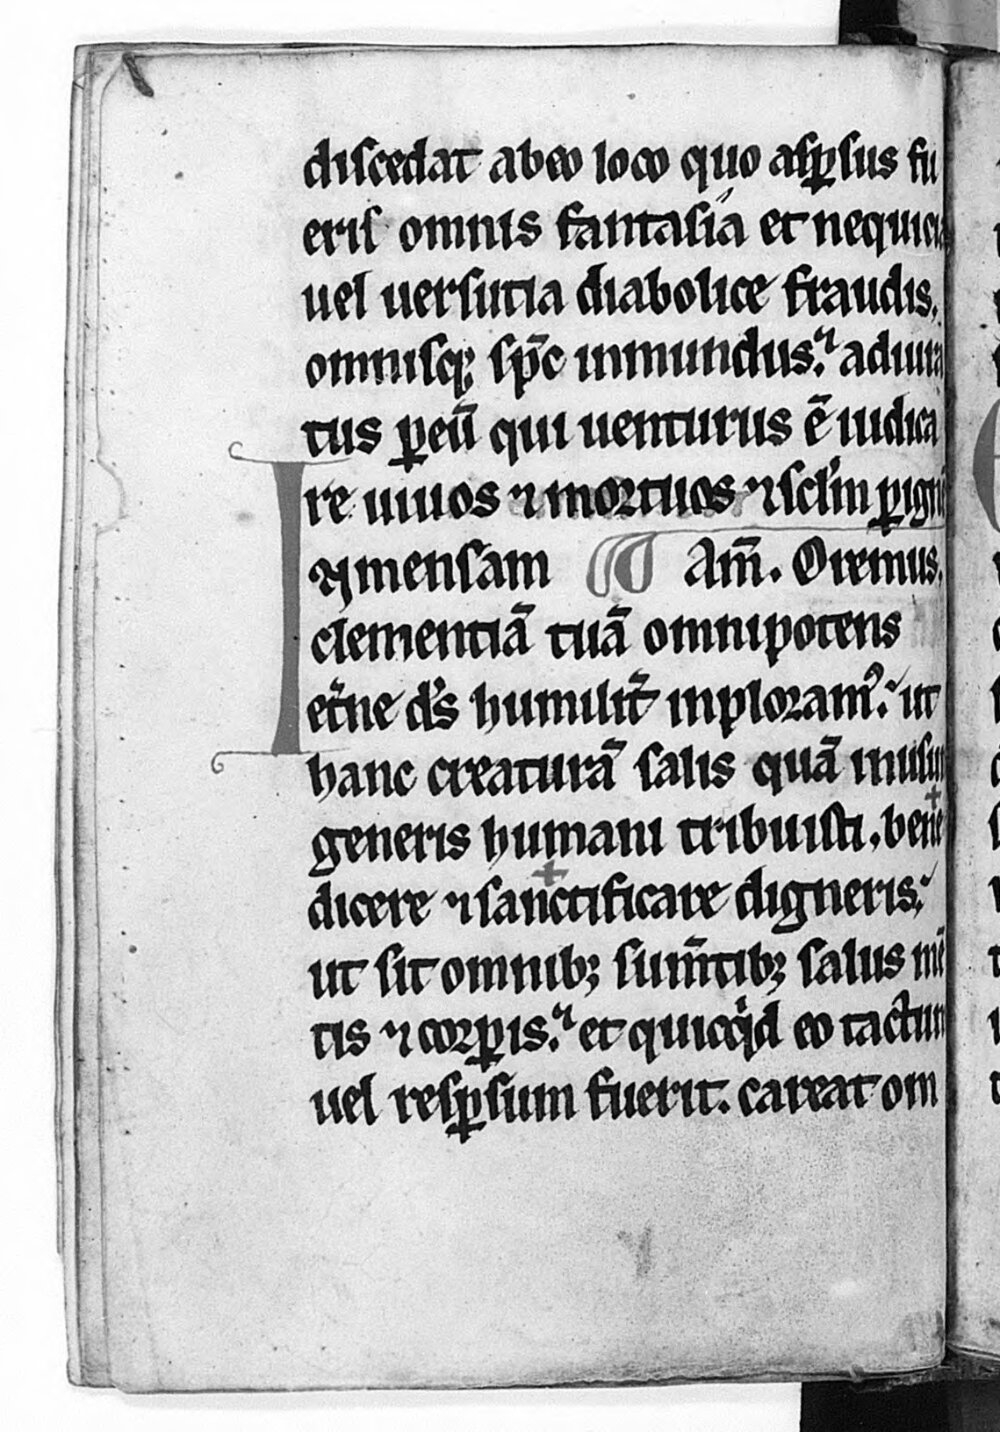 discedat ab eo loco quo asꝑsus fu
eris omnis fantasia et nequicia
uel uersutia diabolice fraudis.
omnisq; sp̄c inmundus. adiura
tus ꝑ eū qui uenturus ē iudica
re uiuos ⁊ mortuos ⁊ sc̄lm ꝑ ignē
I⁊mensam Am̄. Oremus.
clementiā tuā omnipotens
et̄ne ds̄ humilit̄ inploram᷒. ut
hanc creaturā salis quā in usum
generis humani tribuisti. bene
dicere ⁊ sanctificare digneris.
ut sit omnib; sum̄tib; salus mē
tis ⁊ corꝑis. et quicq̇d eo tactum
uel resꝑsum fuerit. careat om